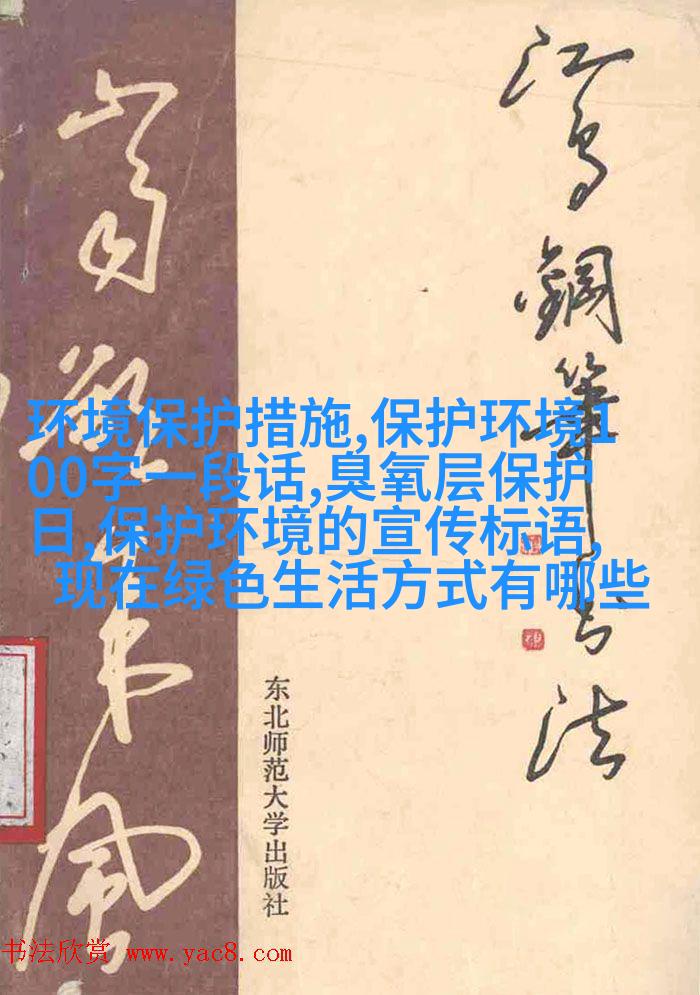 江鸟鋼筆书法
环境保护措施,保护环境1
00字一段话,臭氧层保护
日,保护环境的宣传标语,
现在绿色生活方式有哪些
东北师范大学出版社
书法欣赏 www.yac8.com